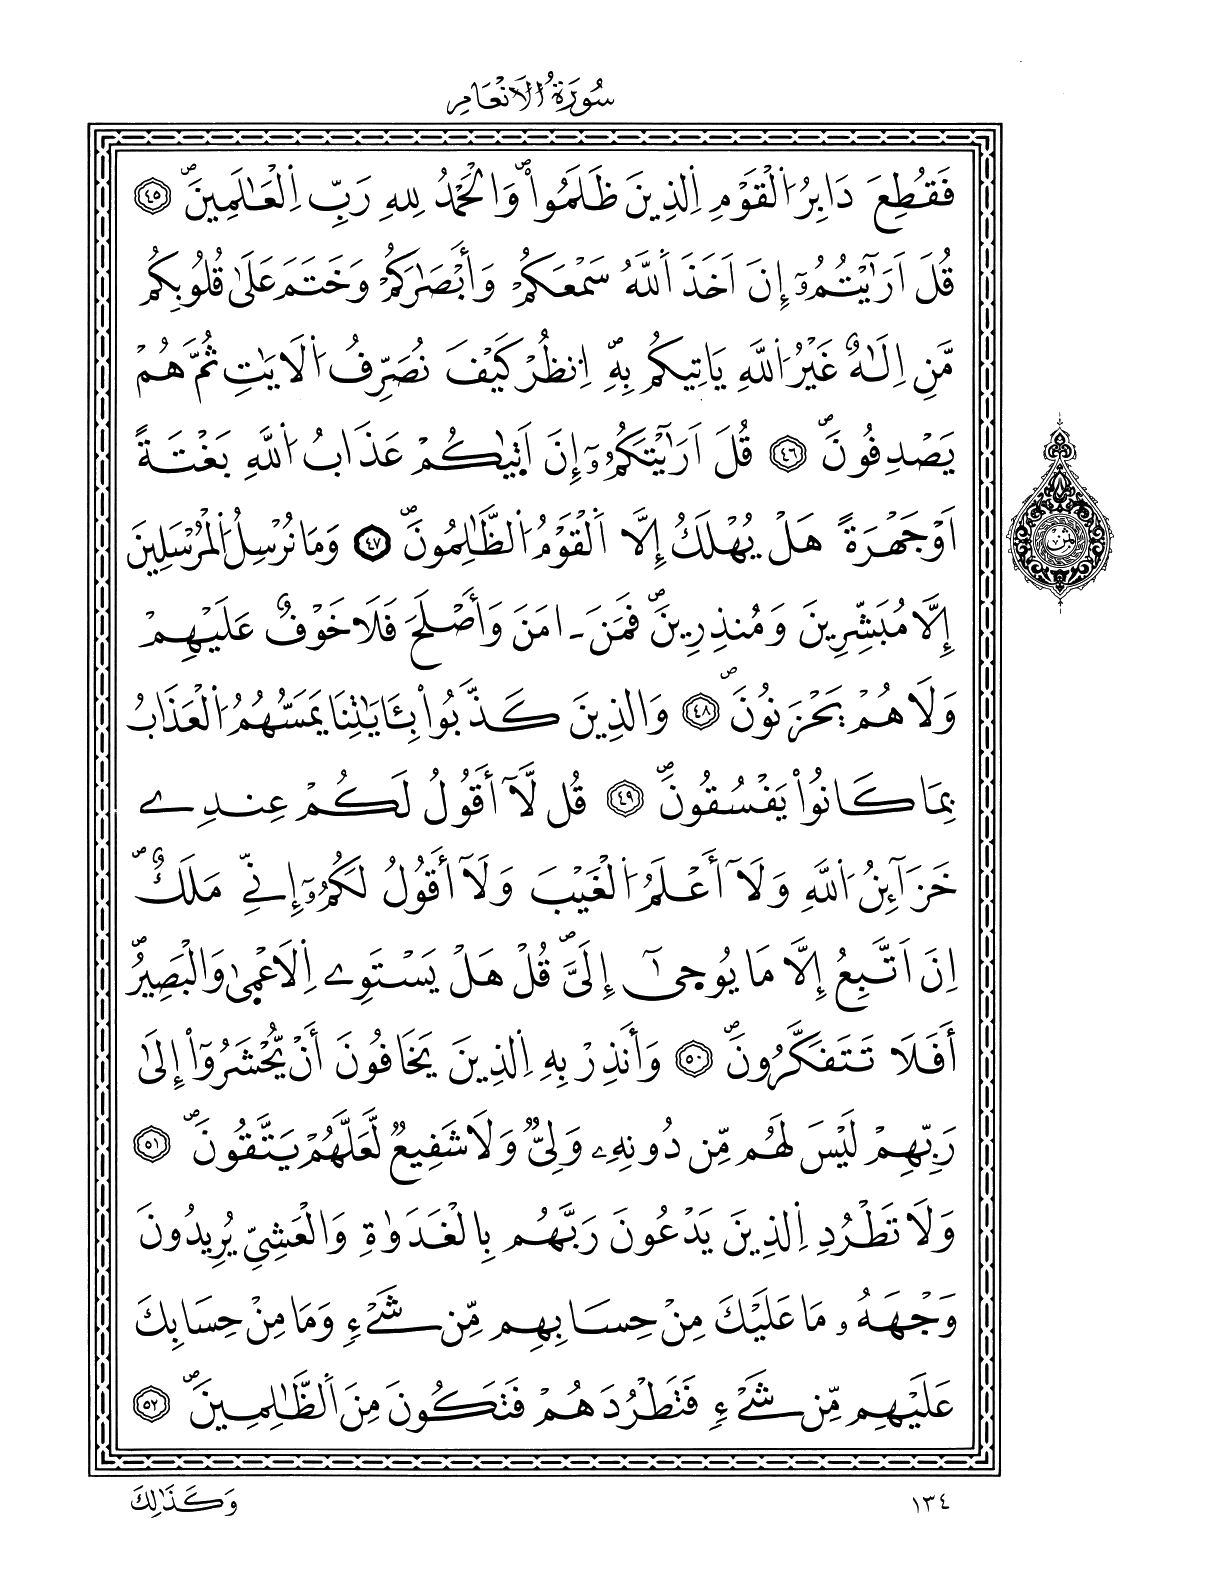 سُورَةُ الَانْعَامِ
فَقُطِعَ دَابِرُ اُلْقَوْمِ اِلذِينَ ظَلَمُواْۖ وَالْحَمْدُ لِلهِ رَبِّ اِلْعَٰلَمِينَۖ ٤٥
قُلَ اَرَٰٓيْتُمُۥٓ إِنَ اَخَذَ اَللَّهُ سَمْعَكُمْ وَأَبْصَٰرَكُمْ وَخَتَمَ عَلَىٰ قُلُوبِكُم
مَّنِ اِلَٰهٌ غَيْرُ اُللَّهِ يَاتِيكُم بِهِۖ اِنظُرْ كَيْفَ نُصَرِّفُ اُلَايَٰتِ ثُمَّ هُمْ
يَصْدِفُونَۖ ٤٦ قُلَ اَرَٰٓيْتَكُمُۥٓ إِنَ اَت۪يٰكُمْ عَذَابُ اُللَّهِ بَغْتَةً
اَوْ جَهْرَةً هَلْ يُهْلَكُ إِلَّا اَلْقَوْمُ اُلظَّٰلِمُونَۖ ٤٧ وَمَا نُرْسِلُ اُلْمُرْسَلِينَ
إِلَّا مُبَشِّرِينَ وَمُنذِرِينَۖ فَمَنَ ـ امَنَ وَأَصْلَحَ فَلَا خَوْفٌ عَلَيْهِمْ
وَلَا هُمْ يَحْزَنُونَۖ ٤٨ وَالذِينَ كَذَّبُواْ بِـَٔايَٰتِنَا يَمَسُّهُمُ اُلْعَذَابُ
بِمَا كَانُواْ يَفْسُقُونَۖ ٤٩ قُل لَّآ أَقُولُ لَكُمْ عِندِے
خَزَآئِنُ اُللَّهِ وَلَآ أَعْلَمُ اُلْغَيْبَ وَلَآ أَقُولُ لَكُمُۥٓ إِنِّے مَلَكٌۖ
اِنَ اَتَّبِعُ إِلَّا مَا يُوح۪يٰٓ إِلَيَّۖ قُلْ هَلْ يَسْتَوِے اِلَاعْم۪يٰ وَالْبَصِيرُۖ
أَفَلَا تَتَفَكَّرُونَۖ ٥٠ وَأَنذِرْ بِهِ اِلذِينَ يَخَافُونَ أَنْ يُّحْشَرُوٓاْ إِلَىٰ
رَبِّهِمْ لَيْسَ لَهُم مِّن دُونِهِۦ وَلِيّٞ وَلَا شَفِيعٞ لَّعَلَّهُمْ يَتَّقُونَۖ ٥١
وَلَا تَطْرُدِ اِلذِينَ يَدْعُونَ رَبَّهُم بِالْغَدَوٰةِ وَالْعَشِيِّ يُرِيدُونَ
وَجْهَهُۥ مَا عَلَيْكَ مِنْ حِسَابِهِم مِّن شَےْءٖ وَمَا مِنْ حِسَابِكَ
عَلَيْهِم مِّن شَےْءٖ فَتَطْرُدَهُمْ فَتَكُونَ مِنَ اَلظَّٰلِمِينَۖ ٥٢
١٣٤
وَكَذَٰلِكَ
ثمن